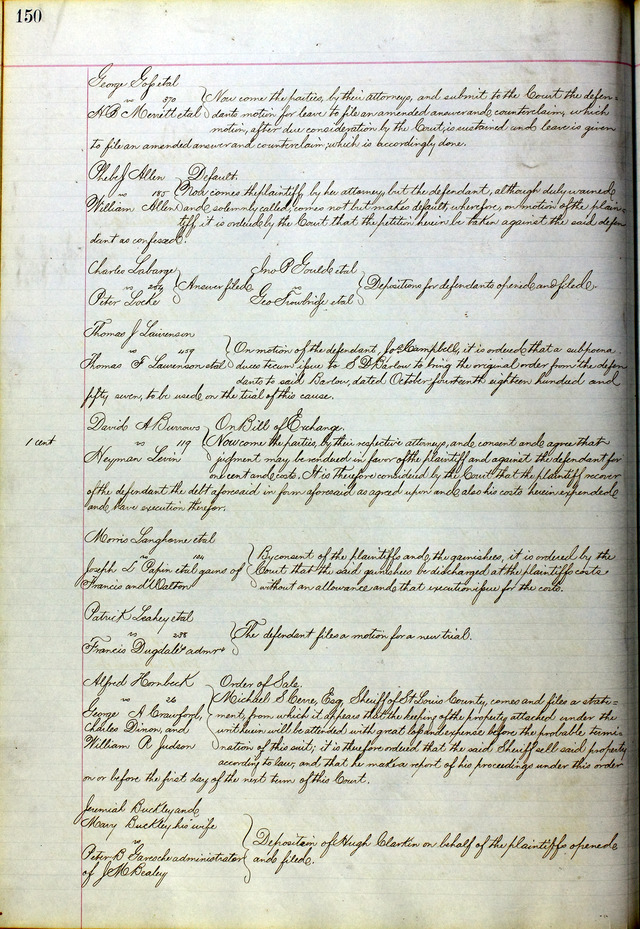 150
George Goss et al
vs 570
N B Merritt et al
Now come the parties, by their attorneys, and submit to the Court the defen-
dants motion for leave to file an amended answer and counterclaim, which
motion, after due consideration by the Court, is sustained and leave is given
to file an amended answer and counterclaim; which is accordingly done.
Phebe J Allen
vs 185
William Allen
Default.
Now comes the plaintiff by her attorney, but the defendant, although duly warned
and solemnly called, comes not but makes default; wherefore, on motion of the plain-
tiff, it is ordered by the Court that the petition herein be taken against the said defen
dant as confessed.
Charles Labarge
vs
Peter Locke
Answer filed
Jno P Gould et al
vs
Geo Trowbridge et al
Depositions for defendants opened and filed.
Thomas J Lawrenson
vs 459
Thomas F Lawrenson et al
On motion of the defendant, Jos Campbell, it is ordered that a subpoena
duces tecum issue to S D Barlow to bring the original order from the defen
dants to said Barlow, dated October fourteenth eighteen hundred and
fifty seven, to be used on the trial of this cause.
David A Burrows
vs 119
Neyman Levin
On Bill of Exchange.
1 cent
Now come the parties, by their respective attorneys, and consent and agree that
judgment may be rendered in favor of the plaintiff and against the defendant for
one cent and costs. It is therefore considered by the Court that the plaintiff recover
of the defendant the debt aforesaid in form aforesaid as agreed upon and also his costs herein expended
and have execution therefor.
Morris Langhorne et al
vs
Joseph L Papin et al garns of
Francis and Walton
By consent of the plaintiffs and the garnishees, it is ordered by the
Court that the said garnishees be discharged at the plaintiffs costs
without an allowance and that execution issue for the costs.
Patrick Leahey et al
vs 258
Francis Dugdale's admr
The defendant files a motion for a new trial.
Alfred Hornbeck
vs 26
George A Crawford,
Charles Dixon, and
William R Judson
Order of Sale.
Michael S Cerre, Esq, Sheriff of St Louis County, comes and files a state-
ment, from which it appears that the keeping of the property attached under the
writ herein will be attended with great loss and expense before the probable termi-
nation of this suit; it is therefore ordered that the said Sheriff sell said property
according to law, and that he make a report of his proceedings under this order
on or before the first day of the next term of this Court.
Jeremiah Buckley and
Mary Buckley his wife
vs
Peter B Garesche administrator
of J M Bealey
Deposition of Hugh Clarkin on behalf of the plaintiffs opened
and filed.